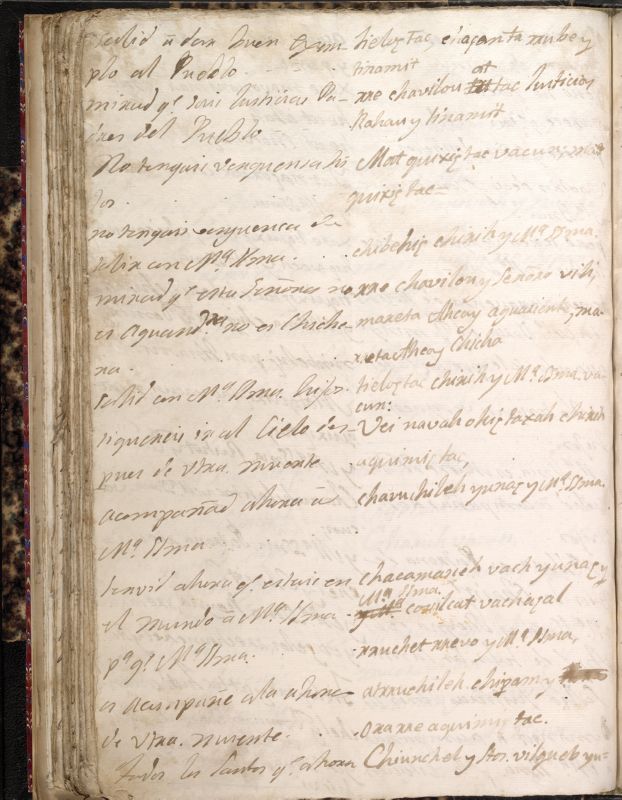 salid á dar buen Exm-
plo al Pueblo.
mirad q.e sois Justicias Pa-
dres del Pueblo
No tengais verguensa hi
jos.
no tenguis verguenca de
salir con M.a Ssma.
mirad q.e esta Señora no
es Aguard.te no es Chiche
ra.
salid con M.a Ssma. hijos.
si quereis ir al Cielo des-
pues de vtra. muerte.
acompañad ahora á
M.a Ssma
servid ahora q.e estais en
el mundo á M.a Ssma.
p.a q.e M.a Ssma.
os acompañe a la ahora
de vtra. muerte.
todos los Santos q.e ahora
tielostac, chaçanta xnubey
tinamit
xre chavilou at tac Justicias
Kahauy tinamit
Mat quixistac vacun: mat
quixis tac=
chibehis chirih y M.a Ssma.
xre chavilou y Señora vihi,
maxeta theay aguariente, ma-
xreta theay Chicha
tielostac chirih y M.a Ssma. va-
cun:
Vei navah okis taxah chirih
aquimistac,
chavuchileh yunas y M.a Ssma.
chacamaneh vach yunas y
M.a Ssma.
covilcat vachasal
xruchet xrevo y M.a Ssma,
atxruchileh chipam y
oxaxre aquimis tac.
Chiunchel y Stos. vilqueb yu=